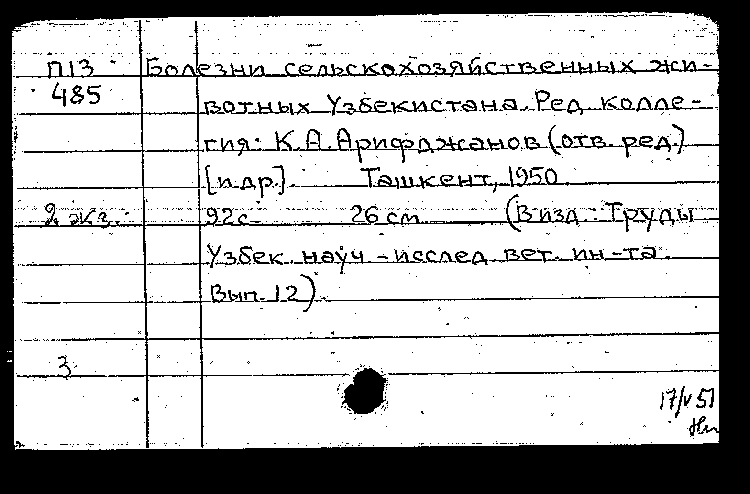 П13 Болезни сельскохозяйственных жи-
485 вотных Узбекистана. Ред. колле-
гия: К.А. Арифджанов (отв. ред.)
[и др.]. Ташкент, 1950.
2 экз. 92с. 26 см. (В изд.: Труды
Узбек. науч.-исслед. вет. ин-та.
Вып. 12).
3
17/V 51